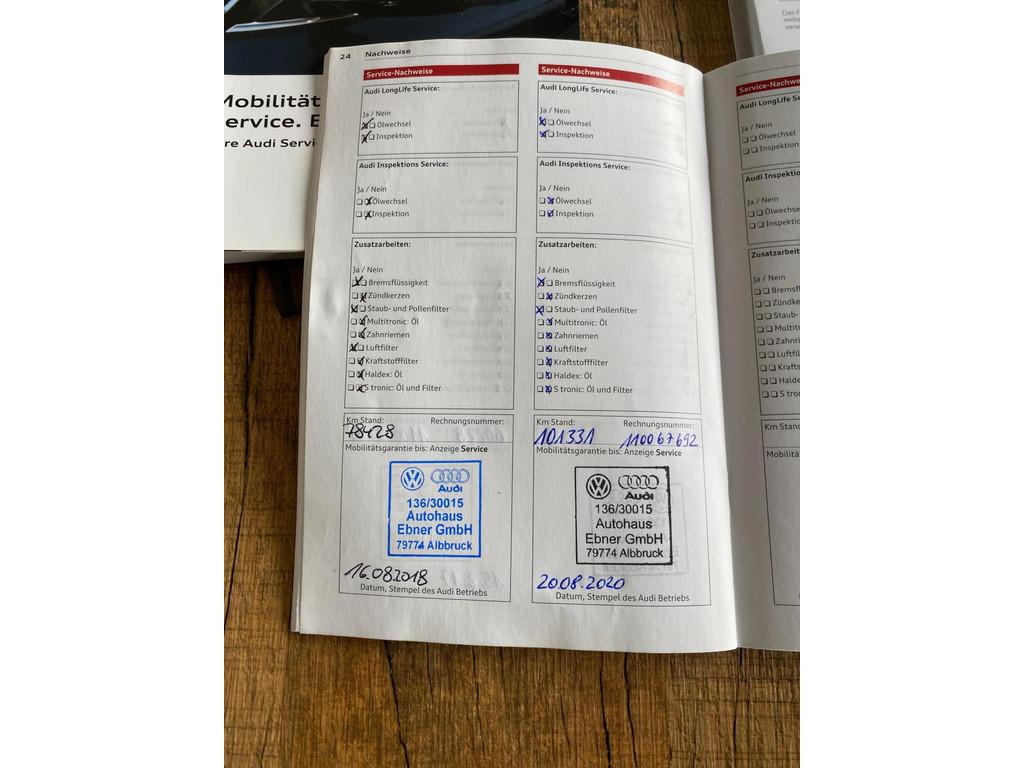 Mobilität
ervice. E
re Audi Servi
24 Nachweise
Service-Nachweise
Audi LongLife Service:
Ja / Nein
Ölwechsel
Inspektion
Audi Inspektions Service:
Ja / Nein
Ölwechsel
Inspektion
Zusatzarbeiten:
Ja / Nein
Bremsflüssigkeit
Zündkerzen
Staub- und Pollenfilter
Multitronic: Öl
Zahnriemen
Luftfilter
Kraftstofffilter
Haldex: Öl
S tronic: Öl und Filter
Km Stand: Rechnungsnummer:
78428
Mobilitätsgarantie bis: Anzeige Service
Audi
136/30015
Autohaus
Ebner GmbH
79774 Albbruck
16.08.2018
Datum, Stempel des Audi Betriebs
Service-Nachweise
Audi LongLife Service:
Ja / Nein
Ölwechsel
Inspektion
Audi Inspektions Service:
Ja / Nein
Ölwechsel
Inspektion
Zusatzarbeiten:
Ja / Nein
Bremsflüssigkeit
Zündkerzen
Staub- und Pollenfilter
Multitronic: Öl
Zahnriemen
Luftfilter
Kraftstofffilter
Haldex: Öl
S tronic: Öl und Filter
Km Stand: Rechnungsnummer:
101331 110067692
Mobilitätsgarantie bis: Anzeige Service
Audi
136/30015
Autohaus
Ebner GmbH
79774 Albbruck
20.08.2020
Datum, Stempel des Audi Betriebs
Service-Nachweise
Audi LongLife Se
Ja / Nein
Ölwechsel
Inspektion
Audi Inspektio
Ja / Nein
Ölwechse
Inspektio
Zusatzarbeit
Ja / Nein
Bremsfl
Zündke
Staub-
Multitr
Zahnri
Luftfil
Krafts
Halde
S tro
Km Stand
Mobilitäts